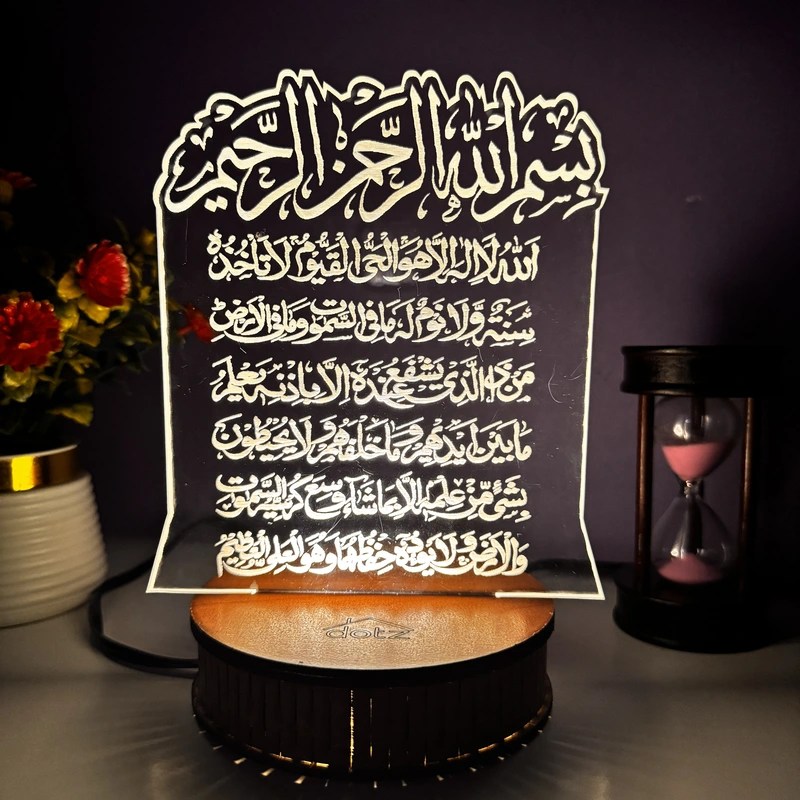 بِسْمِ اللهِ الرَّحْمٰنِ الرَّحِيْمِ
اَللهُ لَا اِلٰهَ اِلَّا هُوَ الْحَىُّ الْقَيُّوْمُ لَا تَأْخُذُهٗ
سِنَةٌ وَّلَا نَوْمٌ لَهٗ مَا فِى السَّمٰوٰتِ وَمَا فِى الْاَرْضِ
مَنْ ذَا الَّذِىْ يَشْفَعُ عِنْدَهٗ اِلَّا بِاِذْنِهٖ يَعْلَمُ
مَا بَيْنَ اَيْدِيْهِمْ وَمَا خَلْفَهُمْ وَلَا يُحِيْطُوْنَ
بِشَىْءٍ مِّنْ عِلْمِهٖ اِلَّا بِمَا شَآءَ وَسِعَ كُرْسِيُّهُ السَّمٰوٰتِ
وَالْاَرْضَ وَلَا يَئُوْدُهٗ حِفْظُهُمَا وَهُوَ الْعَلِىُّ الْعَظِيْمُ
dotz